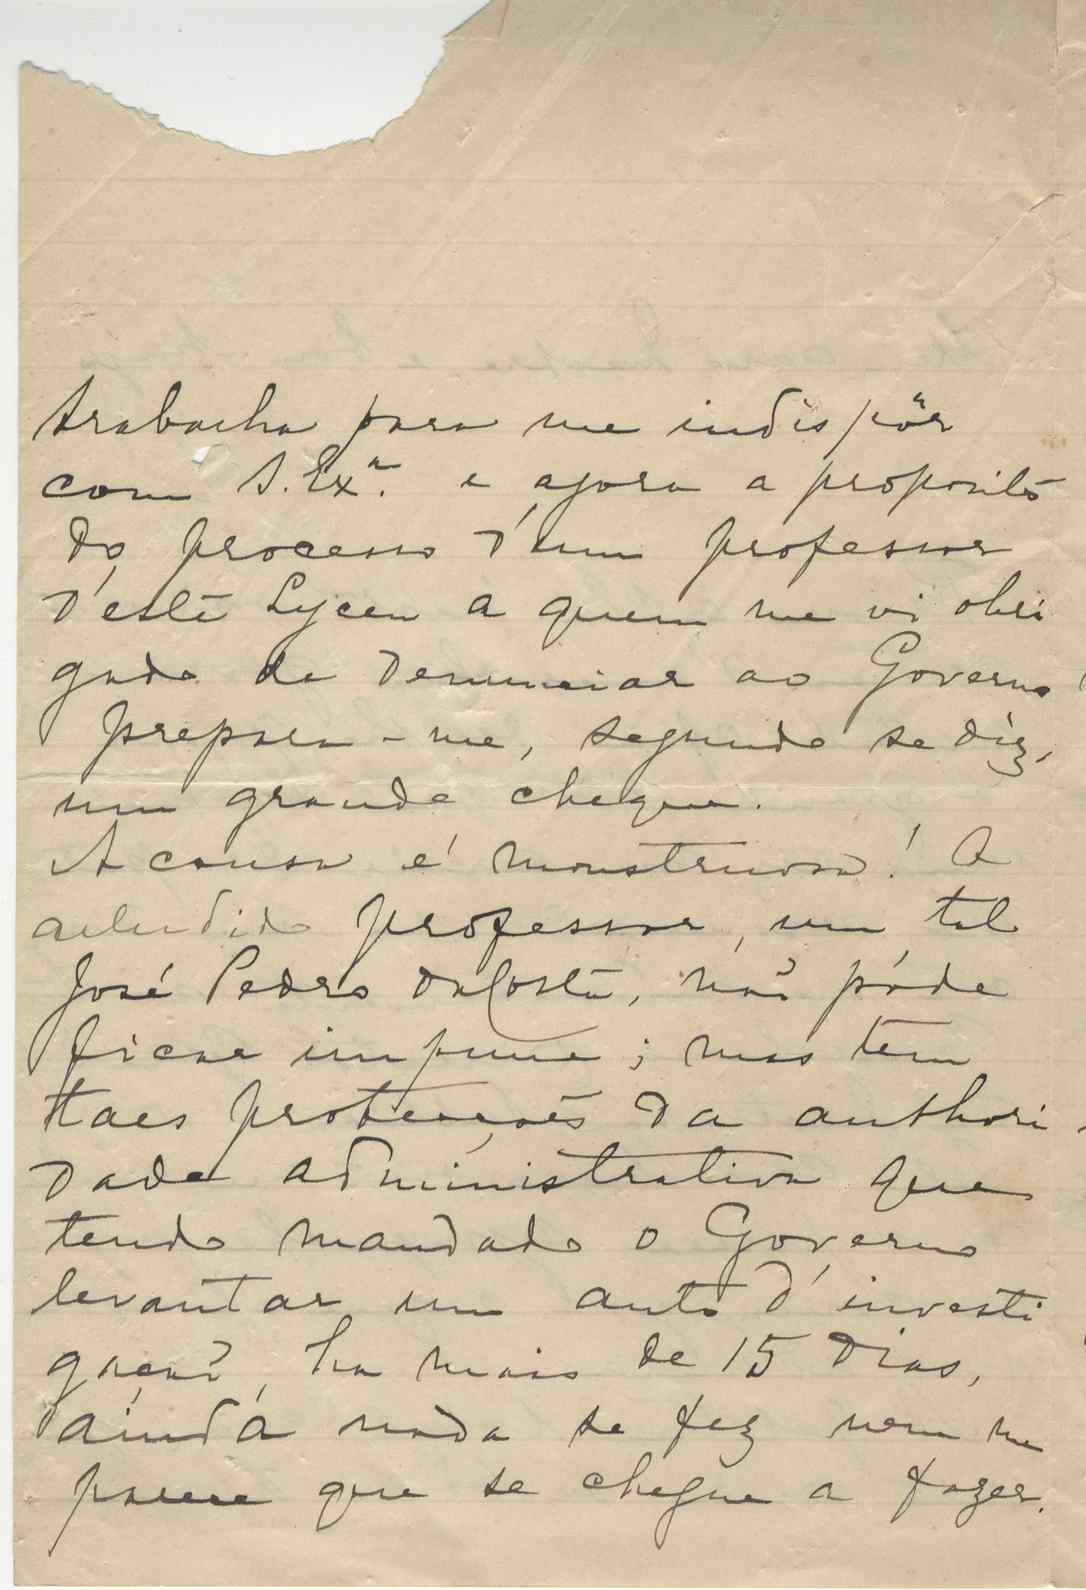 trabalha para me indispôr
com S. Exª. e agora a proposito
do processo d'um professor
d'este Lyceu a quem me vi obri
gado de denunciar ao Governo
prepara-me, segundo se diz,
um grande cheque.
A causa é monstruosa! O
alludido professor, um tal
José Pedro da Costa, não póde
ficar impune; mas tem
taes protecções da authori-
dade administrativa que
tendo mandado o Governo
levantar um auto d'investi
gação, ha mais de 15 dias,
ainda nada se fez nem me
parece que se chegue a fazer.